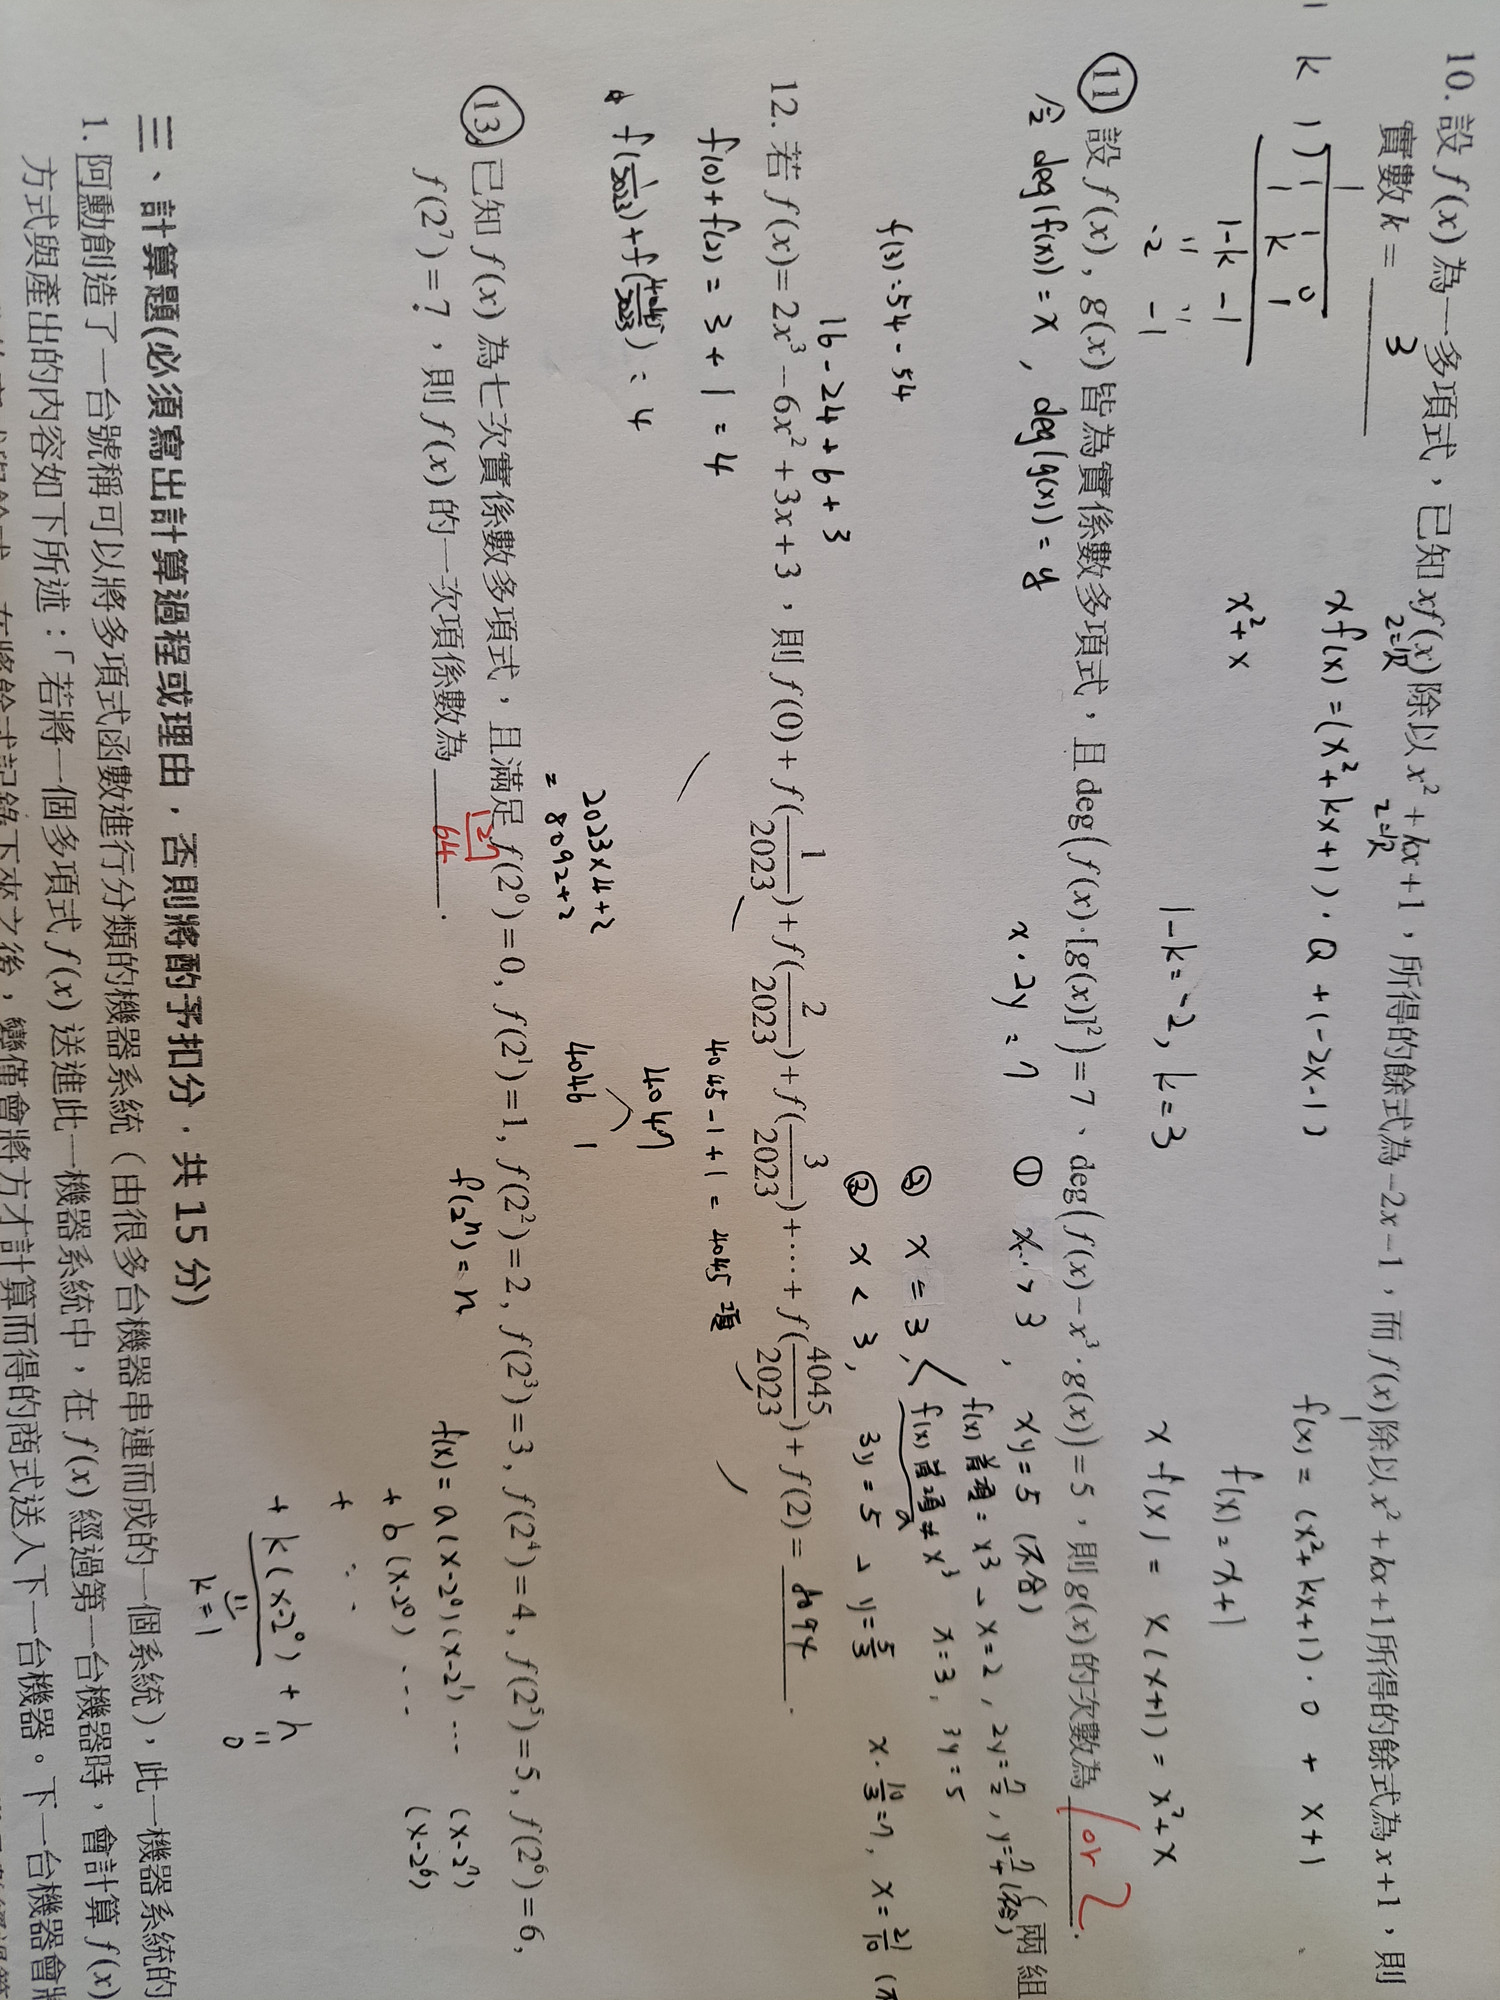 10. 設 f(x) 為一多項式，已知 xf(x) 除以 x² + kx + 1，所得的餘式為 −2x − 1，而 f(x) 除以 x² + kx + 1 所得的餘式為 x + 1，則
實數 k = 3
2=次
2=次
1
xf(x) = (x² + kx + 1) · Q + (−2x−1)
f(x) = (x² + kx + 1) · 0 + x + 1
f(x) = x + 1
x² + x
x f(x) = x(x+1) = x² + x
1
1 k 1 ) 1 1 0
1 k 1
1−k −1
−2 −1
1−k = −2, k = 3
11 設 f(x)，g(x) 皆為實係數多項式，且 deg( f(x)·[g(x)]² ) = 7、deg( f(x) − x³·g(x) ) = 5，則 g(x) 的次數為 1 or 2 .
(兩組
令 deg(f(x)) = x , deg(g(x)) = y
x · 2y = 7
① x > 3 , xy = 5 (不合)
② x = 3 , f(x) 首項 = x³ → x = 2 , 2y = 7/2 , y = 7/4 (不合)
f(x) 首項 ≠ x³ x = 3 , 3y = 5
③ x < 3 , 3y = 5 → y = 5/3 x · 10/3 = 7 , x = 21/10
f(3) = 54 − 54
16 − 24 + 6 + 3
12. 若 f(x) = 2x³ − 6x² + 3x + 3，則 f(0) + f(1/2023) + f(2/2023) + f(3/2023) + ⋯ + f(4045/2023) + f(2) = 8094 .
f(0) + f(2) = 3 + 1 = 4
4045 − 1 + 1 = 4045 項
f(1/2023) + f(4045/2023) = 4
4047
4046 1
2023×4+2
= 8092+2
13. 已知 f(x) 為七次實係數多項式，且滿足 f(2⁰) = 0, f(2¹) = 1, f(2²) = 2, f(2³) = 3, f(2⁴) = 4, f(2⁵) = 5, f(2⁶) = 6,
f(2⁷) = 7，則 f(x) 的一次項係數為 127/64 .
f(2ⁿ) = n
f(x) = a(x−2⁰)(x−2¹) ⋯ (x−2⁷)
+ b(x−2⁰) ⋯ (x−2⁶)
+ ⋮
+ k(x−2⁰) + h
k = 1
0
三、計算題(必須寫出計算過程或理由，否則將酌予扣分．共 15 分)
1. 阿勳創造了一台號稱可以將多項式函數進行分類的機器系統（由很多台機器串連而成的一個系統），此一機器系統的
方式與產出的內容如下所述：「若將一個多項式 f(x) 送進此一機器系統中，在 f(x) 經過第一台機器時，會計算 f(x)
在將餘式記錄下來之後，變僅會將方才計算而得的商式送入下一台機器。下一台機器會將